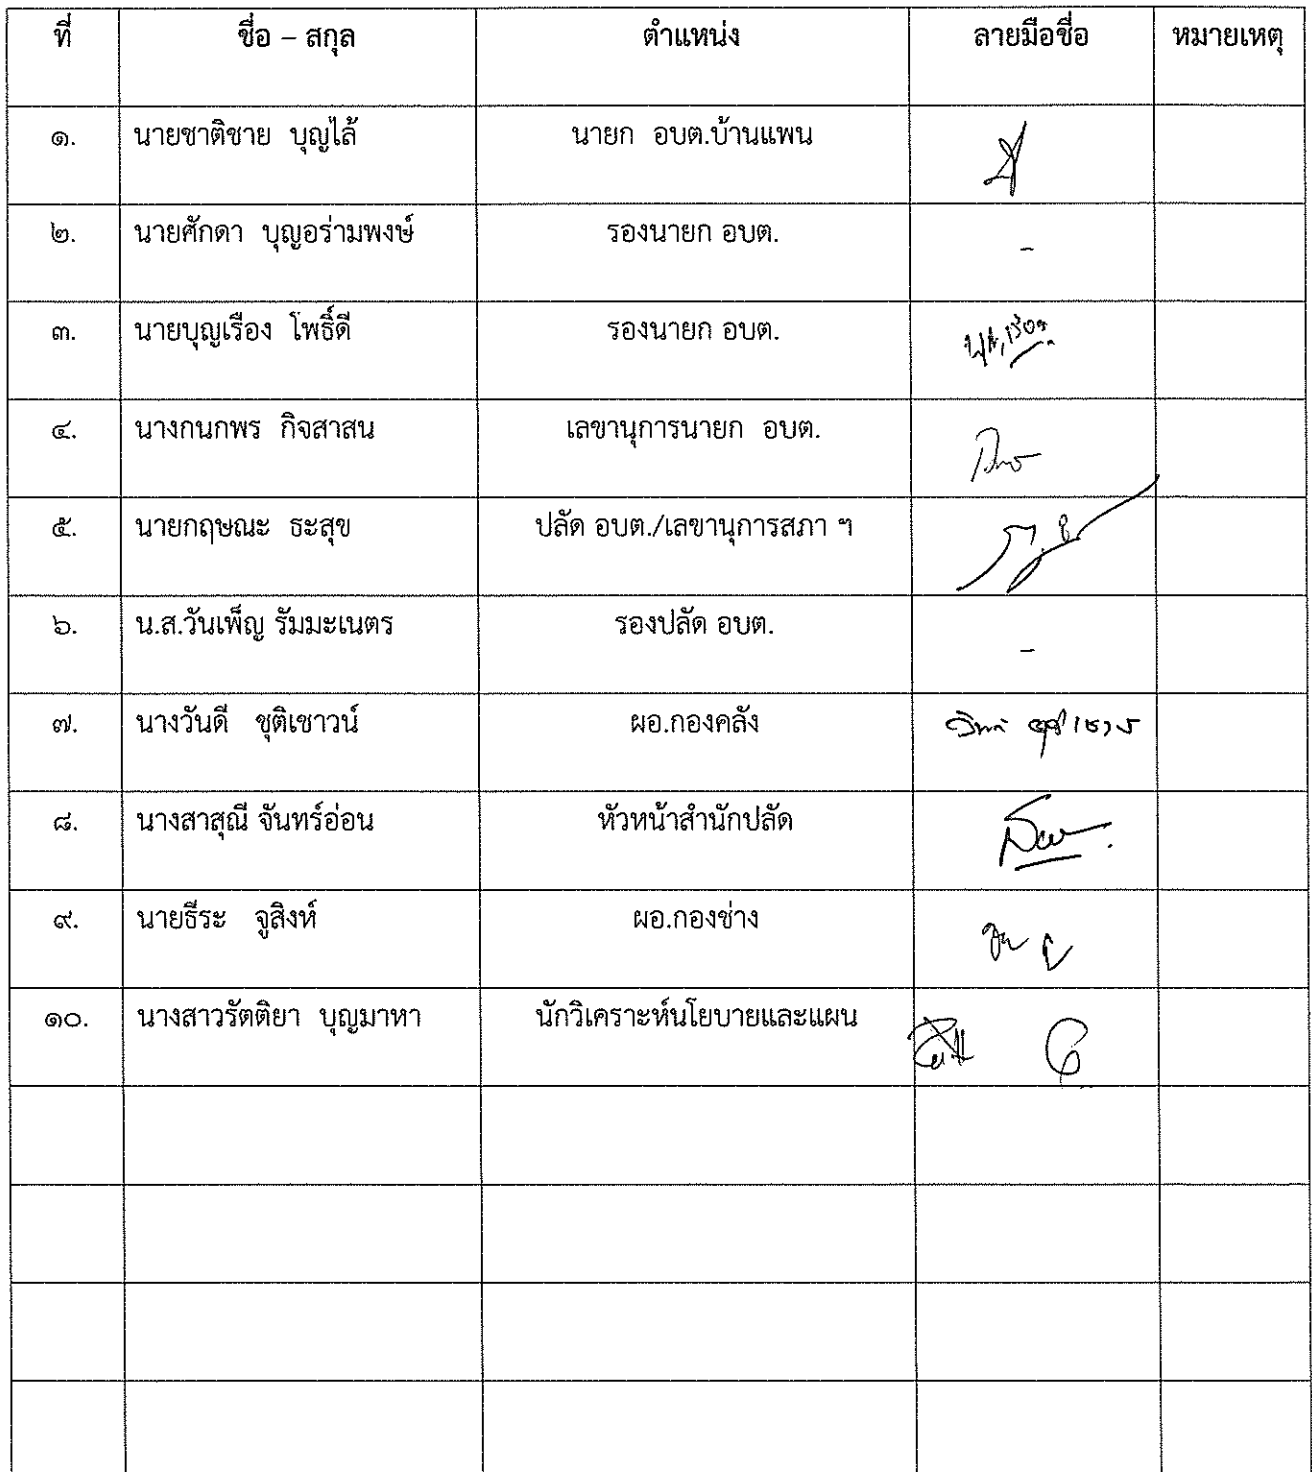 ที่ ชื่อ – สกุล ตำแหน่ง ลายมือชื่อ หมายเหตุ
๑. นายชาติชาย บุญไล้ นายก อบต.บ้านแพน
๒. นายศักดา บุญอร่ามพงษ์ รองนายก อบต. -
๓. นายบุญเรือง โพธิ์ดี รองนายก อบต. บุญเรือง
๔. นางกนกพร กิจสาสน เลขานุการนายก อบต.
๕. นายกฤษณะ ธะสุข ปลัด อบต./เลขานุการสภา ฯ
๖. น.ส.วันเพ็ญ รัมมะเนตร รองปลัด อบต. -
๗. นางวันดี ชุติเชาวน์ ผอ.กองคลัง
๘. นางสาสุณี จันทร์อ่อน หัวหน้าสำนักปลัด
๙. นายธีระ จูสิงห์ ผอ.กองช่าง
๑๐. นางสาวรัตติยา บุญมาหา นักวิเคราะห์นโยบายและแผน